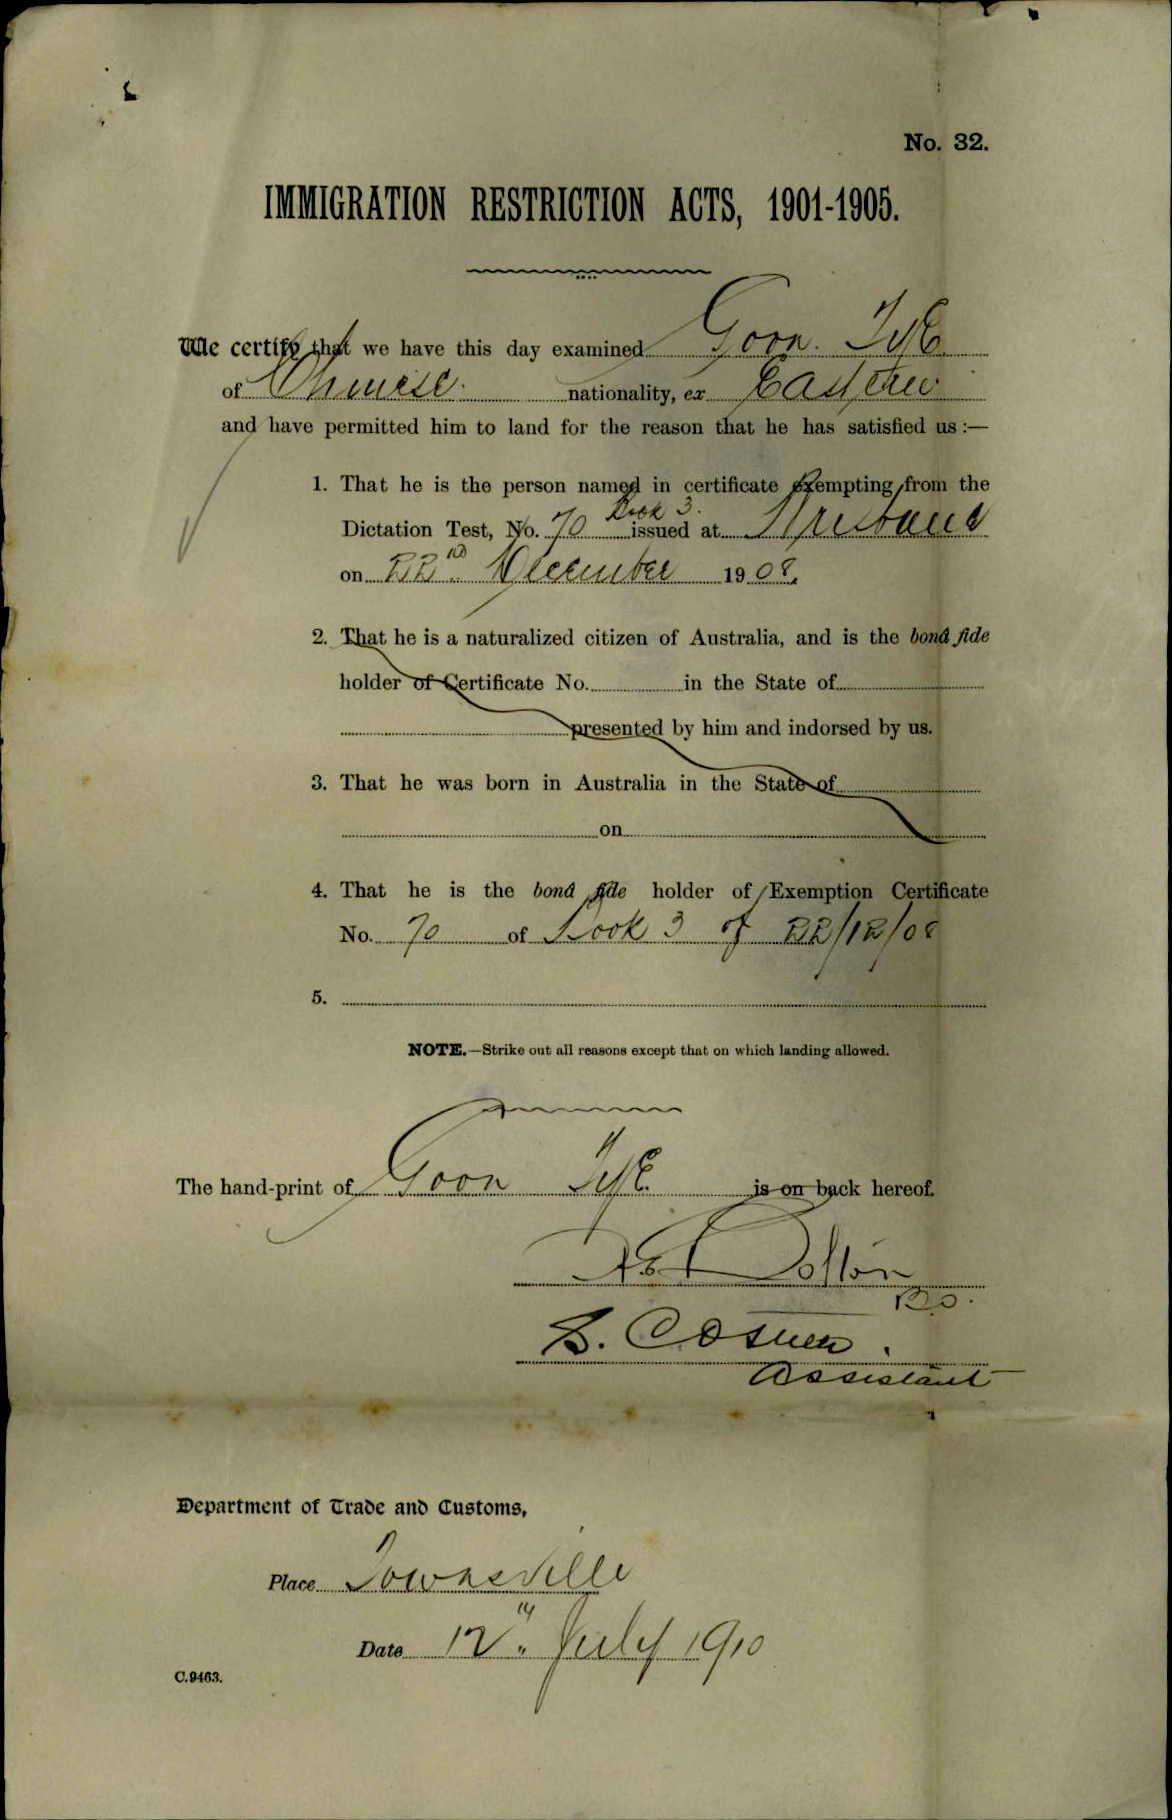 No. 32.
IMMIGRATION RESTRICTION ACTS, 1901-1905.
We certify that we have this day examined Goon Tye
of Chinese nationality, ex Eastern
and have permitted him to land for the reason that he has satisfied us :—
1. That he is the person named in certificate exempting from the
Book 3.
Dictation Test, No. 70 issued at Brisbane
on 22nd December 1908.
2. That he is a naturalized citizen of Australia, and is the bonâ fide
holder of Certificate No. in the State of
presented by him and indorsed by us.
3. That he was born in Australia in the State of
on
4. That he is the bonâ fide holder of Exemption Certificate
No. 70 of Book 3 of 22/12/08
5.
NOTE.—Strike out all reasons except that on which landing allowed.
The hand-print of Goon Tye is on back hereof.
Bolton
Assistant
Department of Trade and Customs,
Place Townsville
Date 12th July 1910
C.9463.